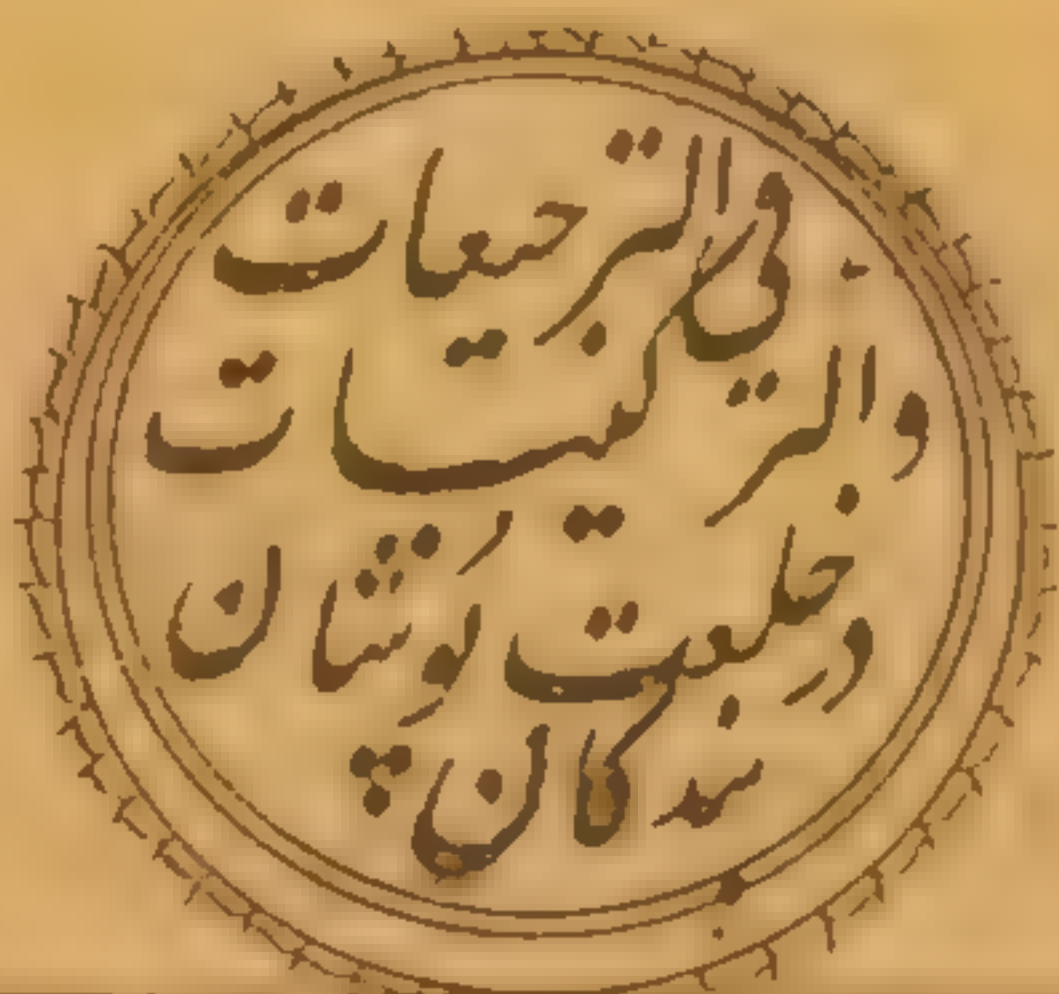 فی الترجیعات
والترکیبات
در خلعت پوشان
بندکان